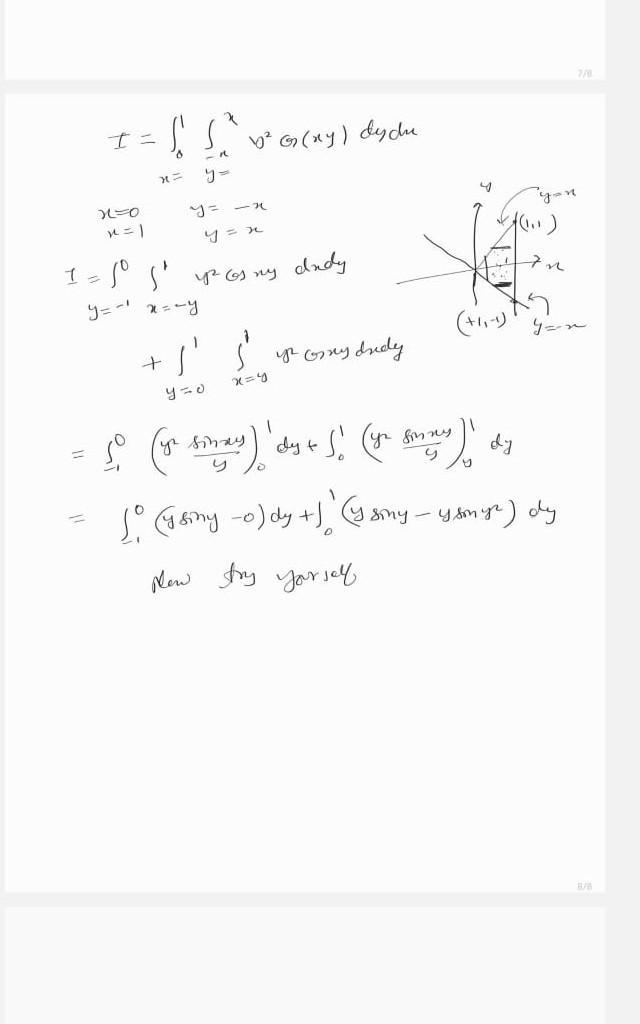 7/8
I = ∫₀¹ ∫₋ₓˣ y² cos(xy) dy dx
x= y=
x=0 y= -x
x=1 y= x
y
y=x
(1,1)
x
(+1,-1)
y=-x
I = ∫⁰ ∫¹ y² cos xy dx dy
y=-1 x=-y
+ ∫¹ ∫¹ y² cos xy dx dy
y=0 x=y
= ∫₋₁⁰ (y² sin xy / y)₀¹ dy + ∫₀¹ (y² sin xy / y)ᵧ¹ dy
= ∫₋₁⁰ (y sin y - 0) dy + ∫₀¹ (y sin y - y sin y²) dy
Now try yourself
8/8